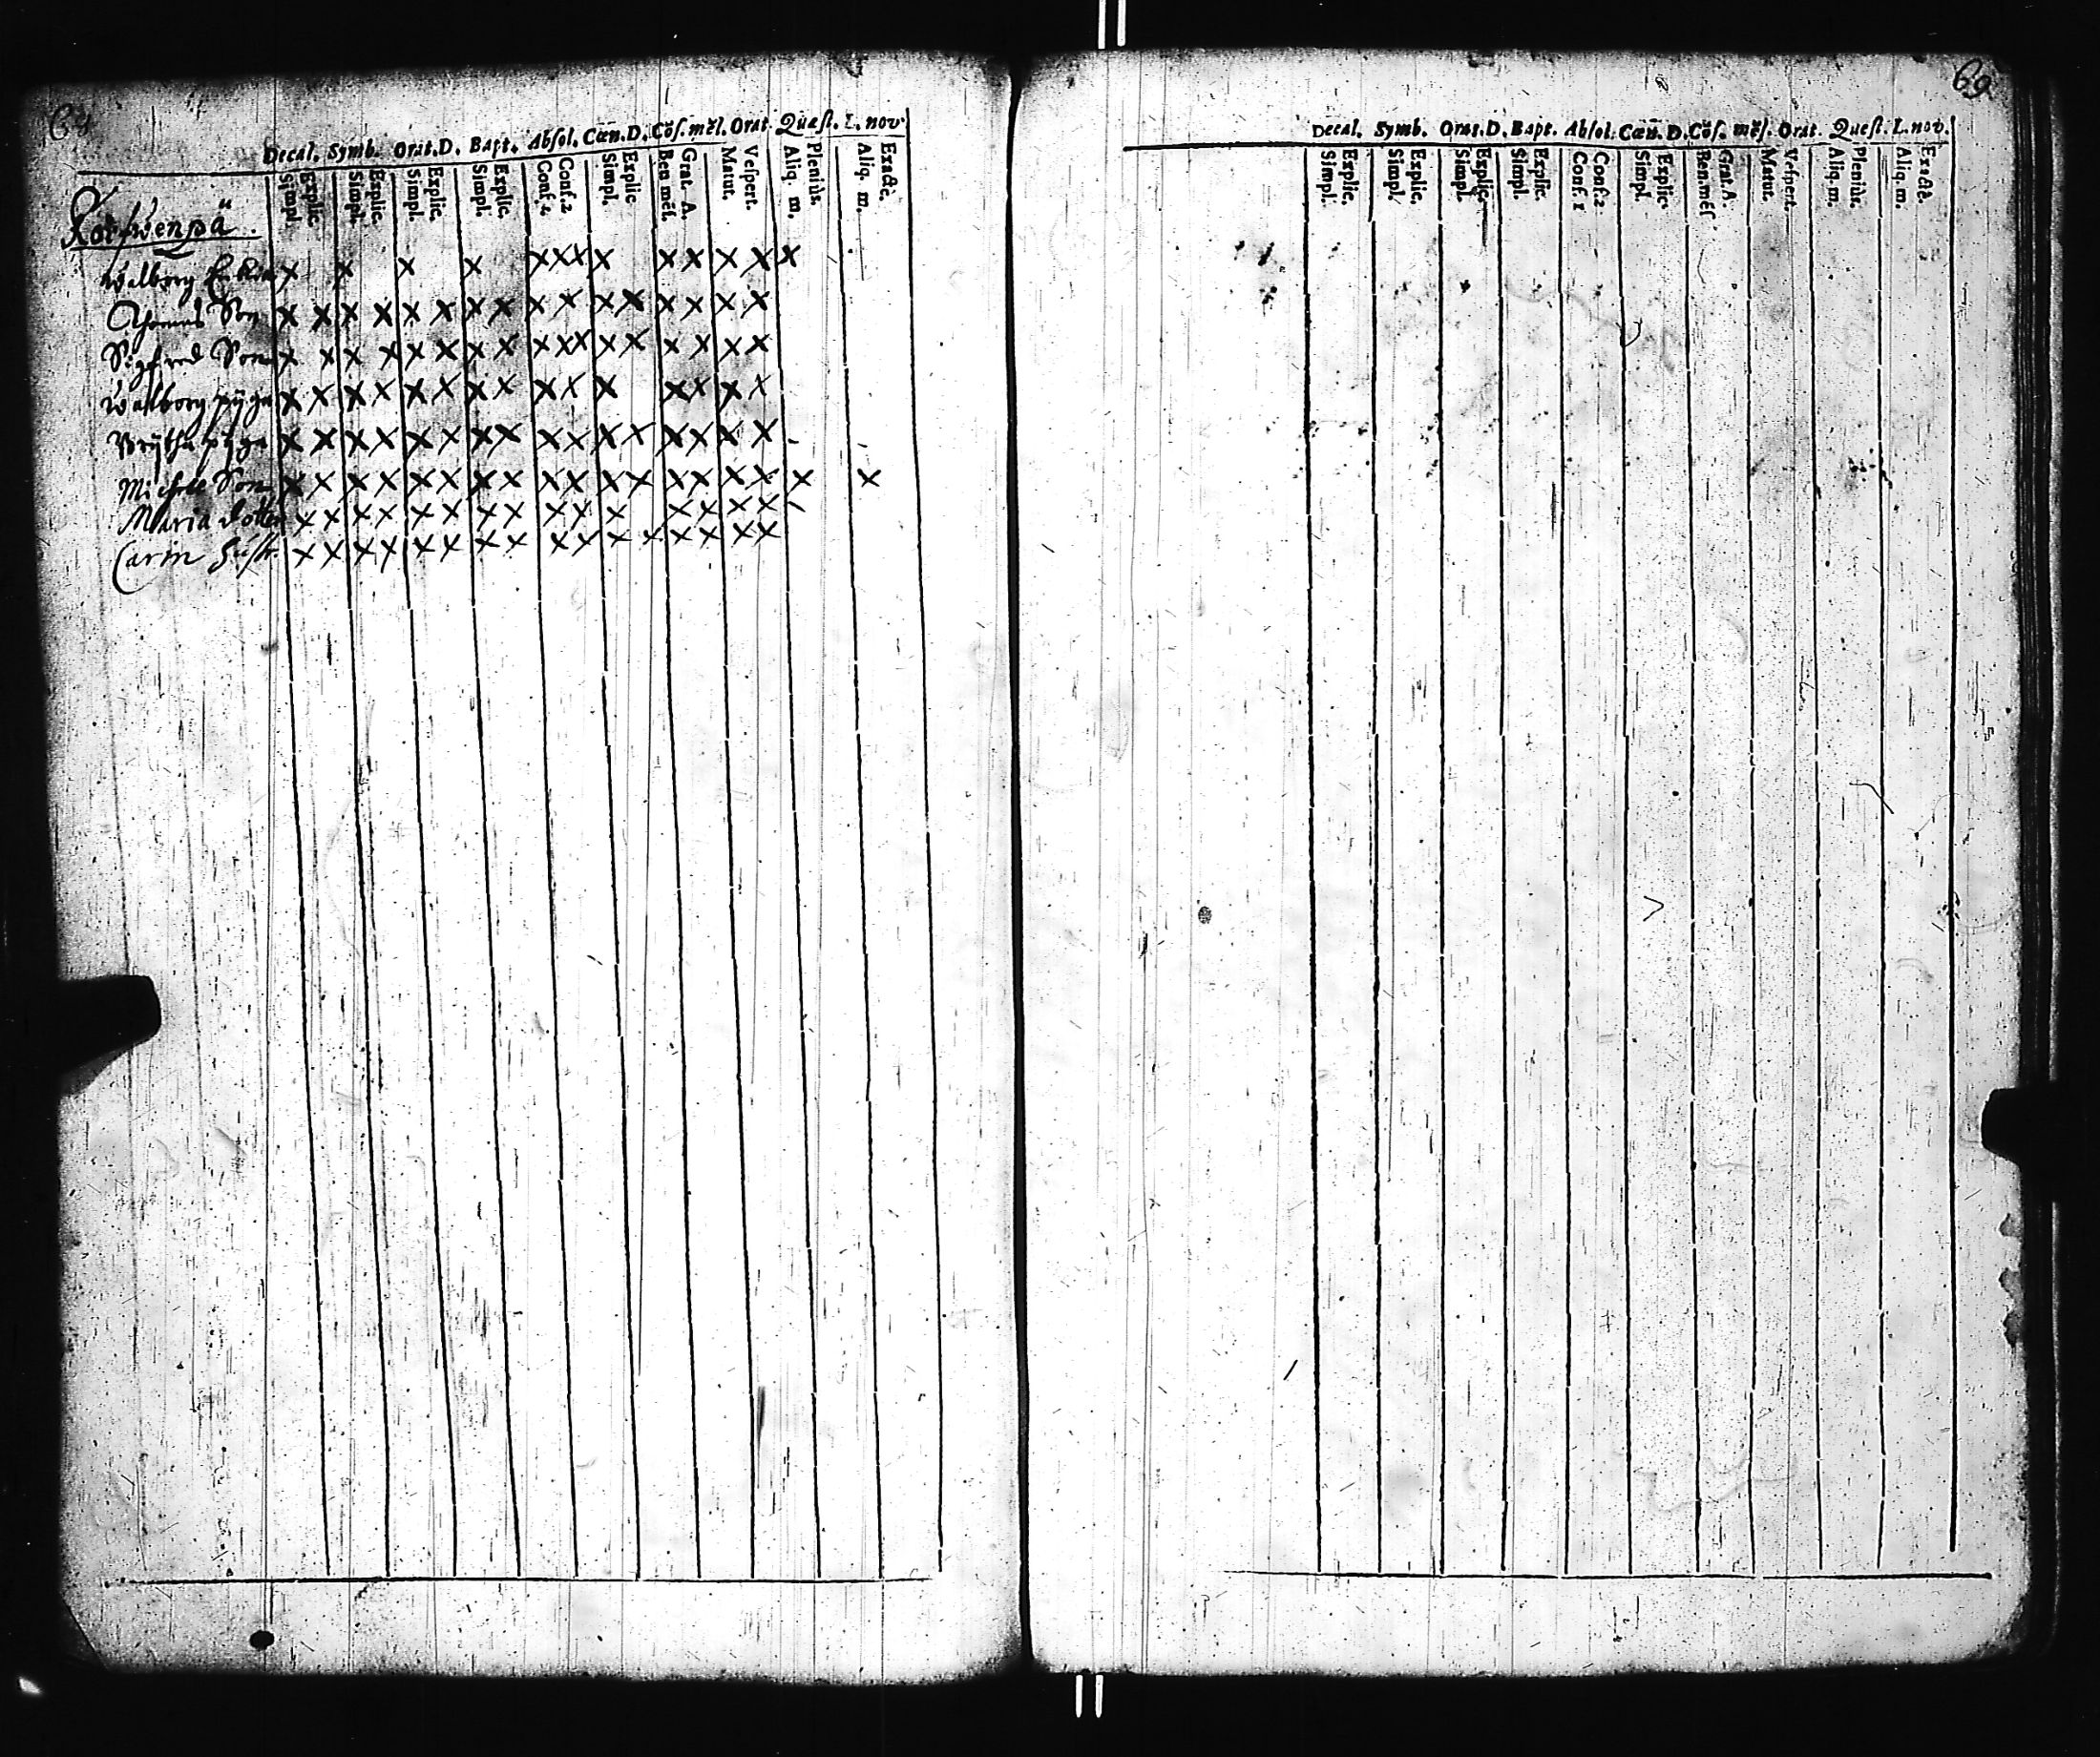 68
Decal. Symb. Orat. D. Bapt. Absol. Cœn. D. Cōs. mēs. Orat. Quæst. L. nov.
Simpl. Explic. Simpl. Explic. Simpl. Explic. Simpl. Explic. Conf. 1 Conf. 2 Simpl. Explic Ben mēs. Grat. A. Matut. Vespert. Aliq. m. Pleniùs. Aliq. m. Exactè.
Walborg x x x x x x x x x x x x x
Thomas Son x x x x x x x x x x x x x x x x
Sigfred Son x x x x x x x x x x x x x x x x x
Walborg pijga x x x x x x x x x x x x x x x
Brijtha pijga x x x x x x x x x x x x x x x x
Michell Son x x x x x x x x x x x x x x x x x x
Maria dotter x x x x x x x x x x x x x x x
Carin hustr x x x x x x x x x x x x x x x x
69
Decal. Symb. Orat. D. Bapt. Absol. Cœn. D. Cōs. mēs. Orat. Quæst. L. nov.
Simpl. Explic. Simpl. Explic. Simpl. Explic. Simpl. Explic. Conf. 1 Conf. 2 Simpl Explic. Ben. mēs Grat. A. Matut. Vespert. Aliq. m. Pleniùs. Aliq. m. Exactè.